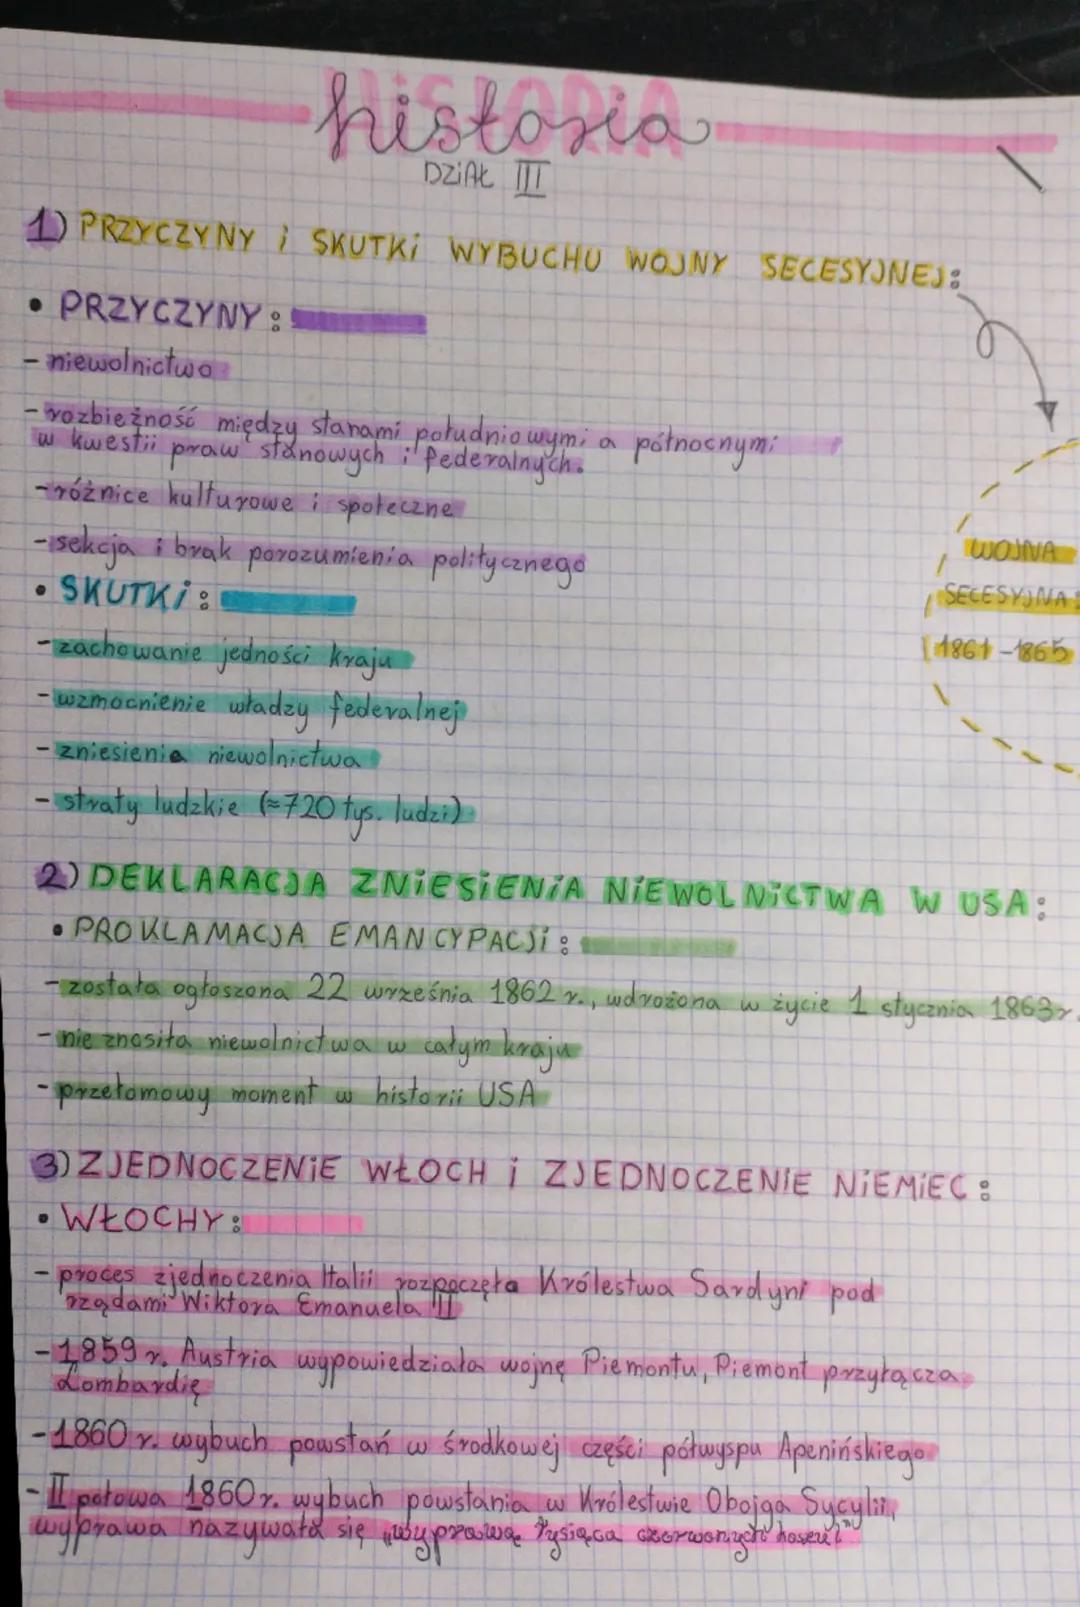 HISTORIA
historia
DZIAŁ III
1) PRZYCZYNY i SKUTKI WYBUCHU WOJNY SECESYJNEJ:
• PRZYCZYNY:
- niewolnictwo
- rozbieżność między stanami południowymi a północnymi
w kwestii praw stanowych i federalnych.
- różnice kulturowe i społeczne
- sekcja i brak porozumienia politycznego
WOJNA
SECESYJNA
1861-1865
• SKUTKI:
- zachowanie jedności kraju
- wzmocnienie władzy federalnej
- zniesienie niewolnictwa
- straty ludzkie (≈720 tys. ludzi)
2) DEKLARACJA ZNIESIENIA NIEWOLNICTWA W USA:
• PROKLAMACJA EMANCYPACJI:
- została ogłoszona 22 września 1862 r., wdrożona w życie 1 stycznia 1863r.
- nie znosiła niewolnictwa w całym kraju
- przełomowy moment w historii USA
3) ZJEDNOCZENIE WŁOCH i ZJEDNOCZENIE NIEMIEC:
• WŁOCHY:
- proces zjednoczenia Italii rozpoczęła Królestwa Sardyni pod
rządami Wiktora Emanuela II
- 1859 r. Austria wypowiedziała wojnę Piemontu, Piemont przyłącza
Lombardię
- 1860 r. wybuch powstań w środkowej części półwyspu Apenińskiego
- II połowa 1860r. wybuch powstania w Królestwie Obojga Sycylii,
wyprawa nazywała się „wyprawą tysiąca czerwonych koszul"